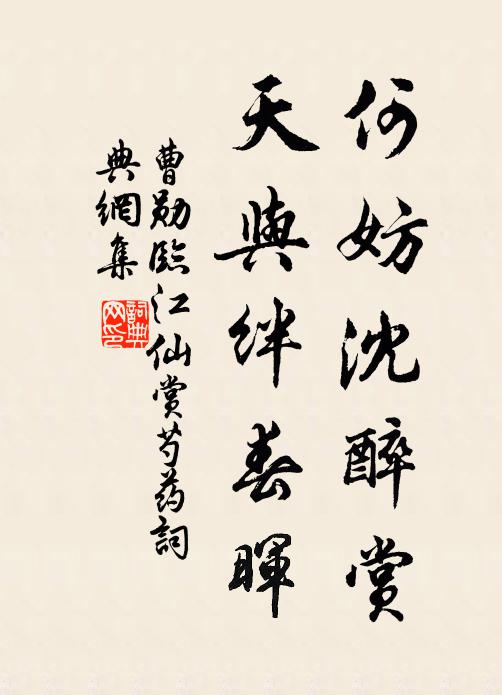 何妨沈醉賞
天與絆春暉
曹勛臨江仙賞芍药詞
典網集
詞典網印